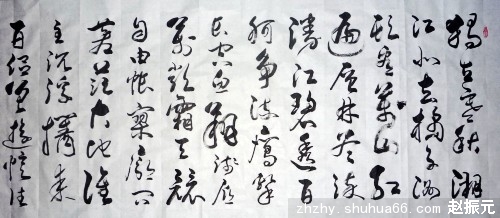 独立寒秋湘
江北去橘子洲
头看万山红
遍层林尽染
漫江碧透百
舸争流鹰击
长空鱼翔浅底
万类霜天竞
自由怅寥廓问
苍茫大地谁
主沉浮携来
百侣曾游忆往
zhzhy.shuhua66.com 赵振元